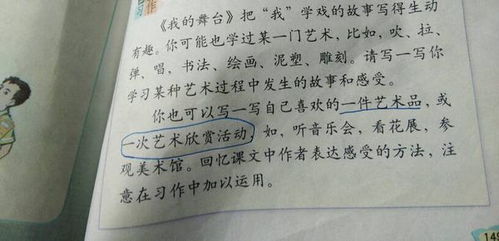 作
《我的舞台》把“我”学戏的故事写得生动
有趣。你可能也学过某一门艺术，比如，吹、拉、
弹、唱，书法、绘画、泥塑、雕刻。请写一写你
学习某种艺术过程中发生的故事和感受。
你也可以写一写自己喜欢的一件艺术品，或
一次艺术欣赏活动，如，听音乐会，看花展，参
观美术馆。回忆课文中作者表达感受的方法，注
意在习作中加以运用。